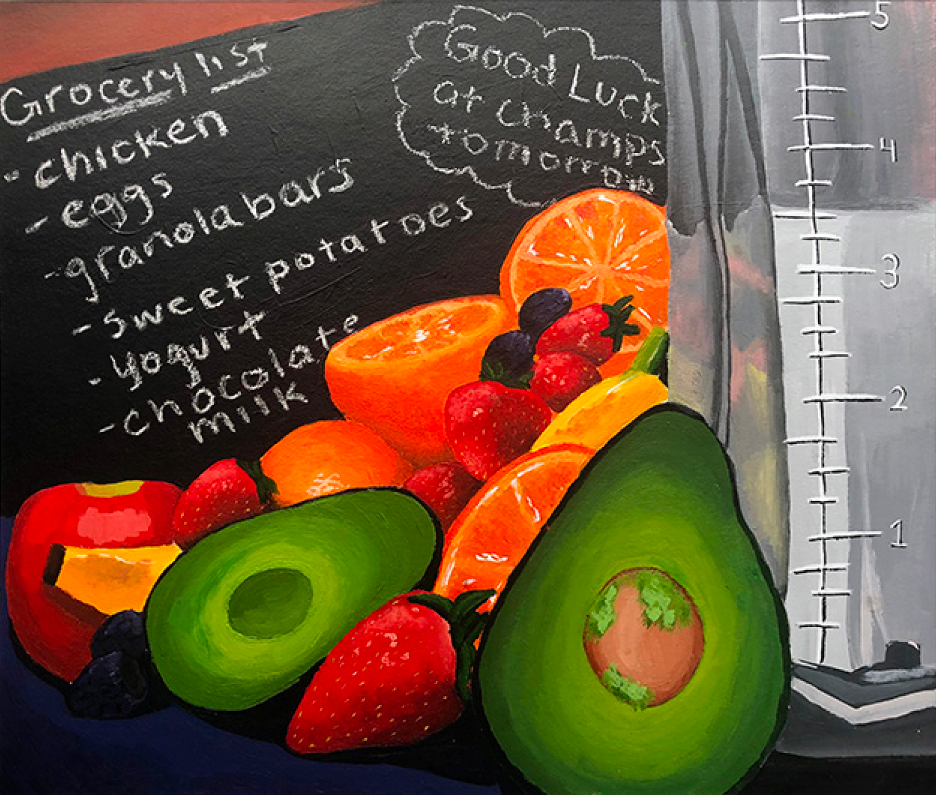 Grocery list
- chicken
- eggs
- granola bars
- sweet potatoes
- yogurt
- chocolate
milk
Good Luck
at champs
tomorrow
5
4
3
2
1